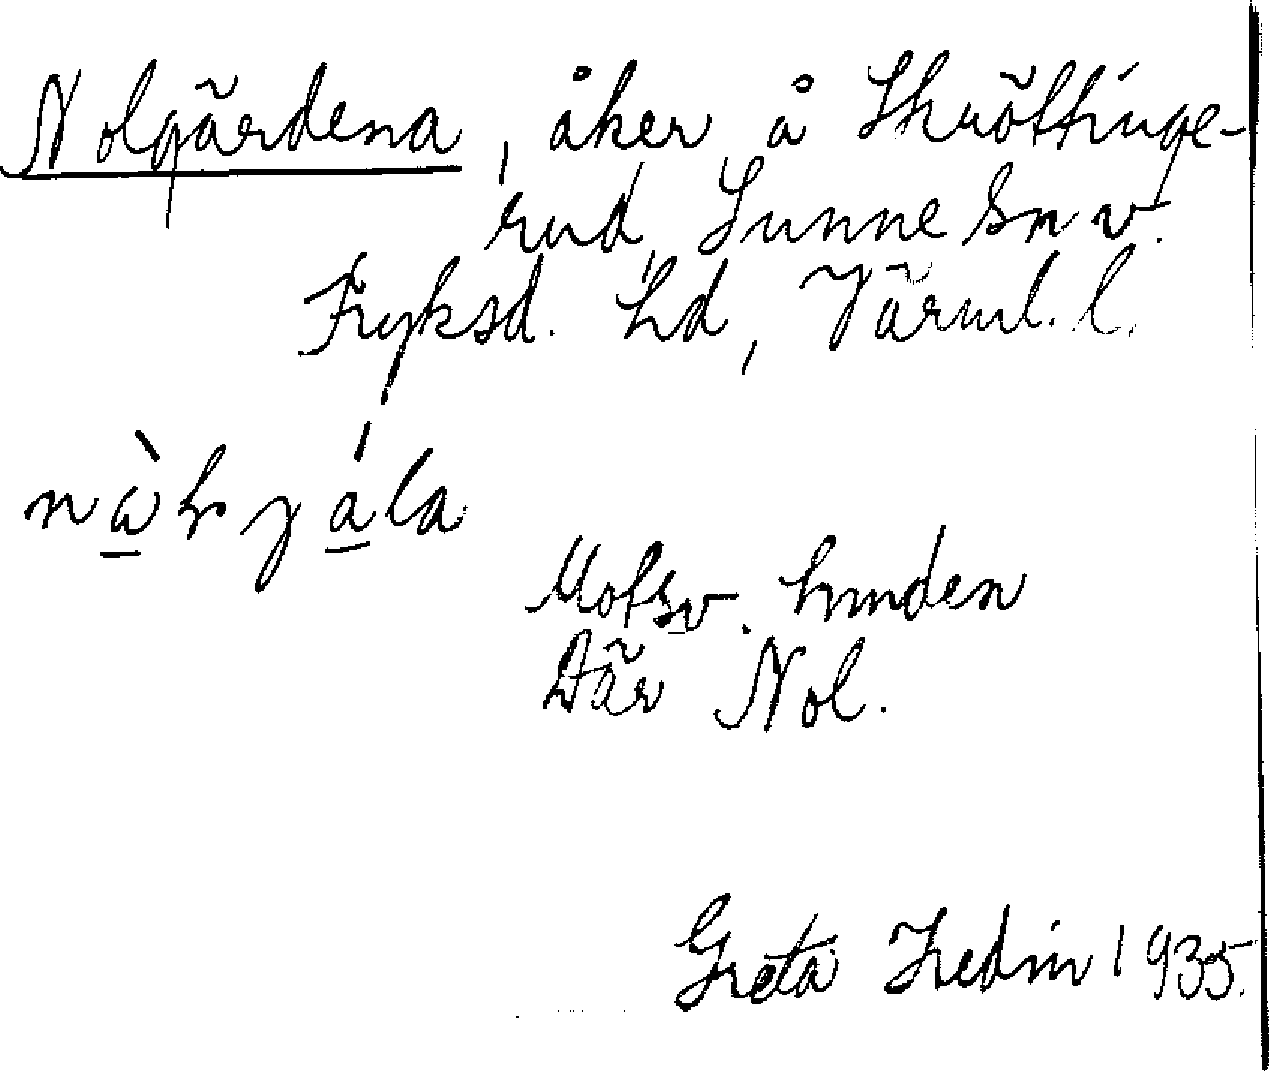 Nolgärdena, åker å Skröttinge-
rud, Sunne sn v.
Fryksd. hd, Värml. l.
Motsv. lunden
Där Nol.
Greta Hedin 1935.